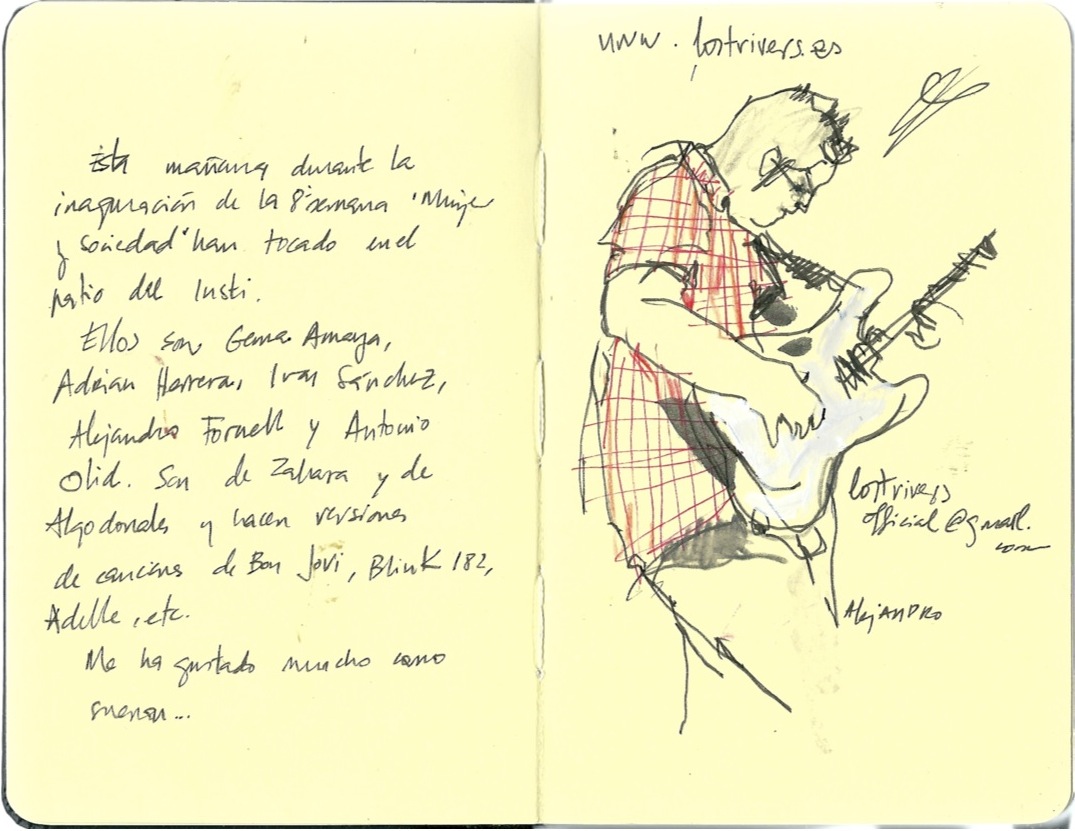 Esta mañana durante la
inaguración de la 8ª semana 'Mujer
y sociedad' han tocado en el
patio del Insti.
Ellos son Gema Amaya,
Adrian Herrera, Ivan Sánchez,
Alejandro Fornell y Antonio
Olid. Son de Zahara y de
Algodonales y hacen versiones
de canciones de Bon Jovi, Blink 182,
Adelle, etc.
Me ha gustado mucho como
suenan...
www.lostrivers.es
lostrivers
official@gmail.
com
Alejandro